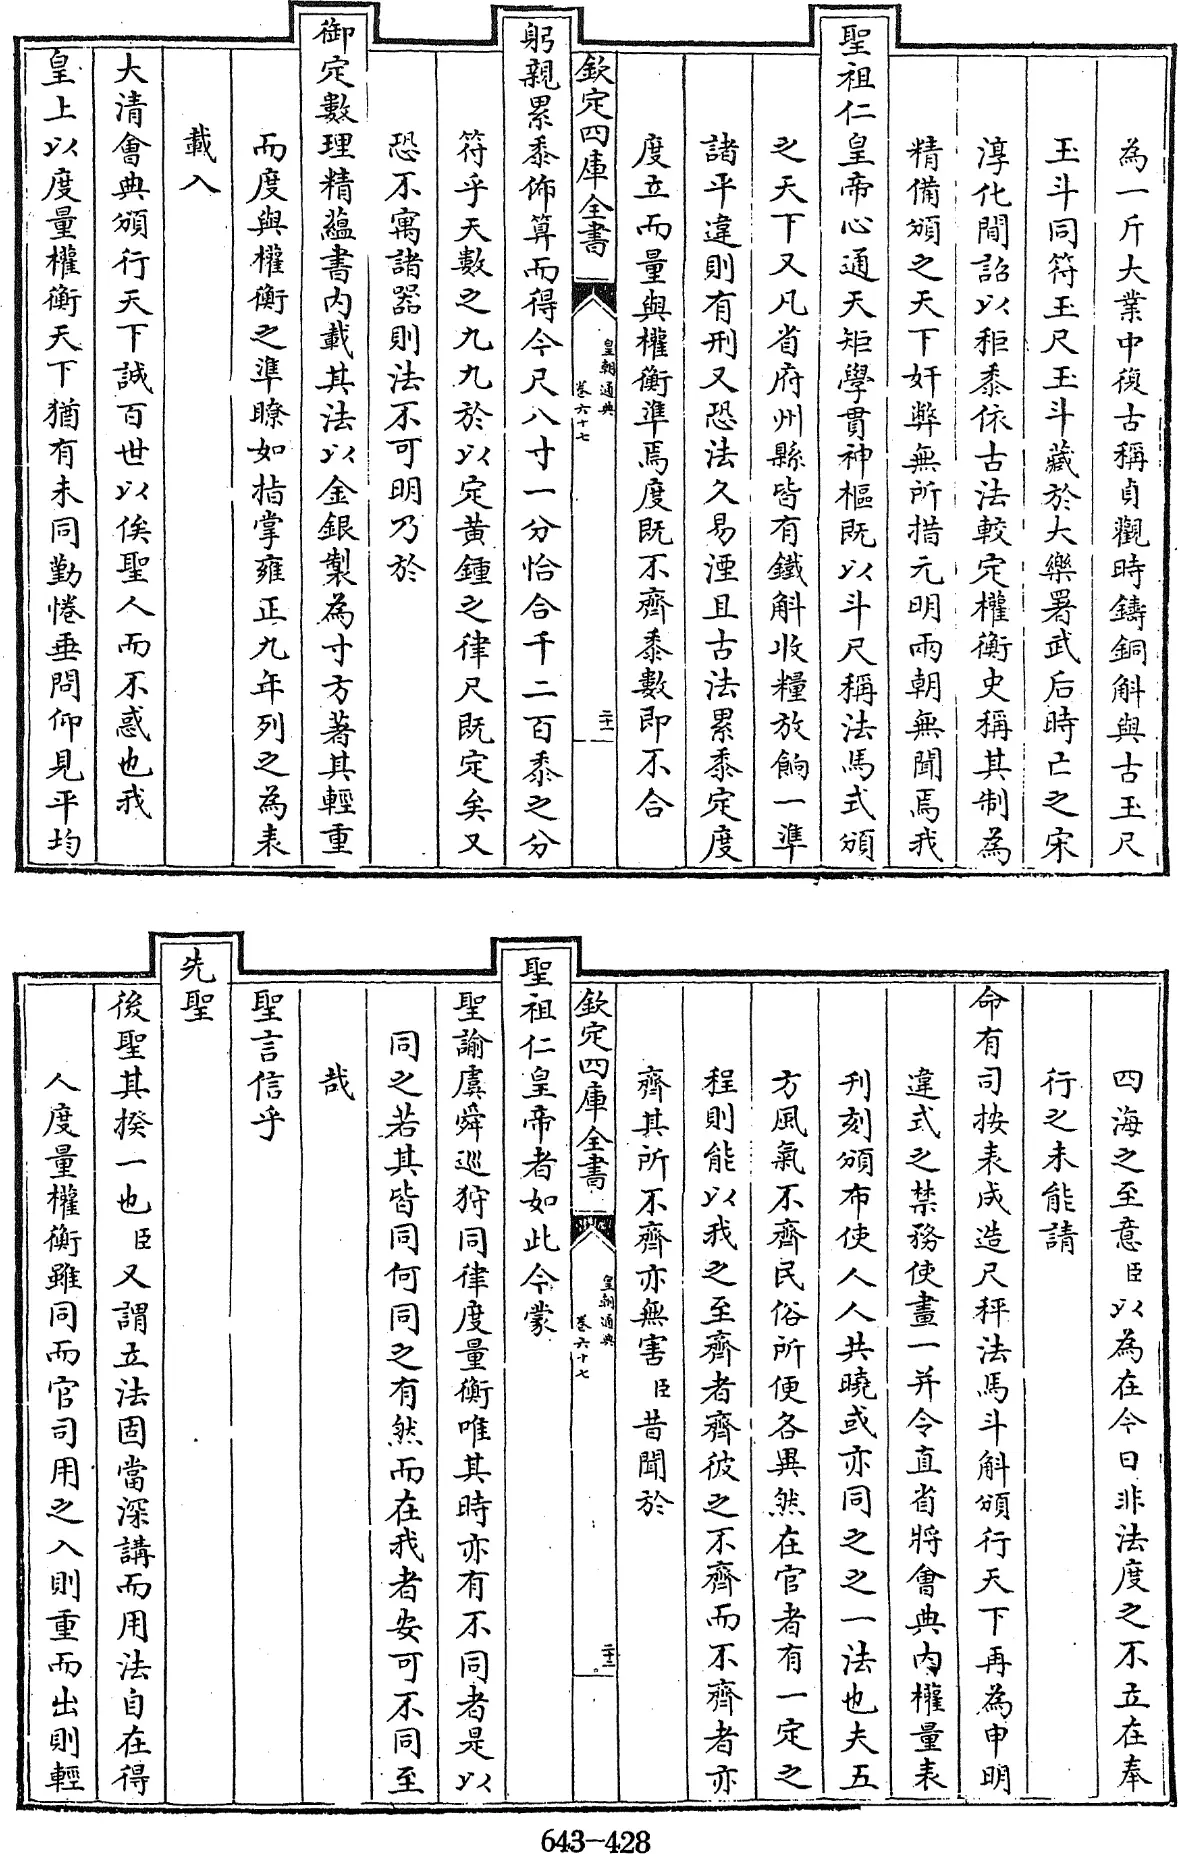 為一斤大業中復古稱貞觀時鑄銅斛與古玉尺
玉斗同符玉尺玉斗藏於大樂署武后時亡之宋
淳化間詔以秬黍依古法較定權衡史稱其制為
精備頒之天下奸弊無所措元明兩朝無聞焉我
聖祖仁皇帝心通天矩學貫神樞既以斗尺稱法馬式頒
之天下又凡省府州縣皆有鐵斛收糧放餉一準
諸平違則有刑又恐法久易湮且古法累黍定度
度立而量與權衡準焉度既不齊黍數即不合
欽定四庫全書
皇朝通典
卷六十七
二十一
躬親累黍佈算而得今尺八寸一分恰合千二百黍之分
符乎天數之九九於以定黃鍾之律尺既定矣又
恐不寓諸器則法不可明乃於
御定數理精蘊書內載其法以金銀製為寸方著其輕重
而度與權衡之準瞭如指掌雍正九年列之為表
載入
大清會典頒行天下誠百世以俟聖人而不惑也我
皇上以度量權衡天下猶有未同勤惓垂問仰見平均
四海之至意臣以為在今日非法度之不立在奉
行之未能請
命有司按表成造尺秤法馬斗斛頒行天下再為申明
違式之禁務使畫一并令直省將會典內權量表
刊刻頒布使人人共曉或亦同之之一法也夫五
方風氣不齊民俗所便各異然在官者有一定之
程則能以我之至齊者齊彼之不齊而不齊者亦
齊其所不齊亦無害臣昔聞於
欽定四庫全書
皇朝通典
卷六十七
二十二
聖祖仁皇帝者如此今蒙
聖諭虞舜巡狩同律度量衡唯其時亦有不同者是以
同之若其皆同何同之有然而在我者安可不同至
哉
聖言信乎
先聖
後聖其揆一也臣又謂立法固當深講而用法自在得
人度量權衡雖同而官司用之入則重而出則輕
643-428